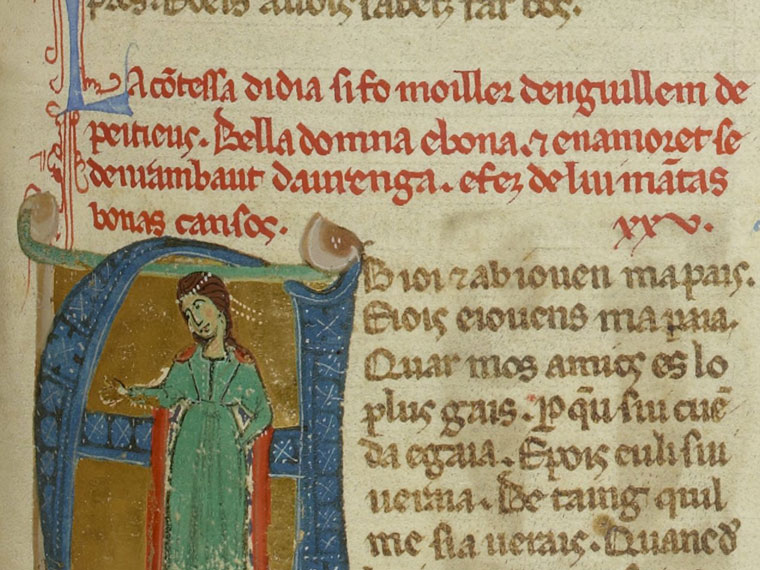 pros. Voels auois sabetz far bos.
La cõtessa didia si fo moiller denguillem de
peitieus. Bella domna ebona. ⁊ enamoret se
denrambaut daurenga. efez de lui mãtas
bonas cansos. xxv.
Ab ioi ⁊ ab iouen mapais.
Eiois eiouens mapaia.
Quar mos amics es lo
plus gais. Per qũ sui cuẽ
da egaia. Epois euli sui
ueraia. Be taing quil
me sia uerais. Quanc d